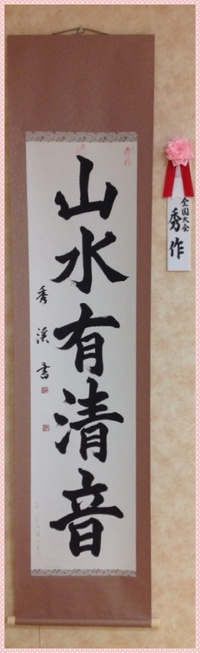 山水有清音
秀渓書
全国大会
秀作